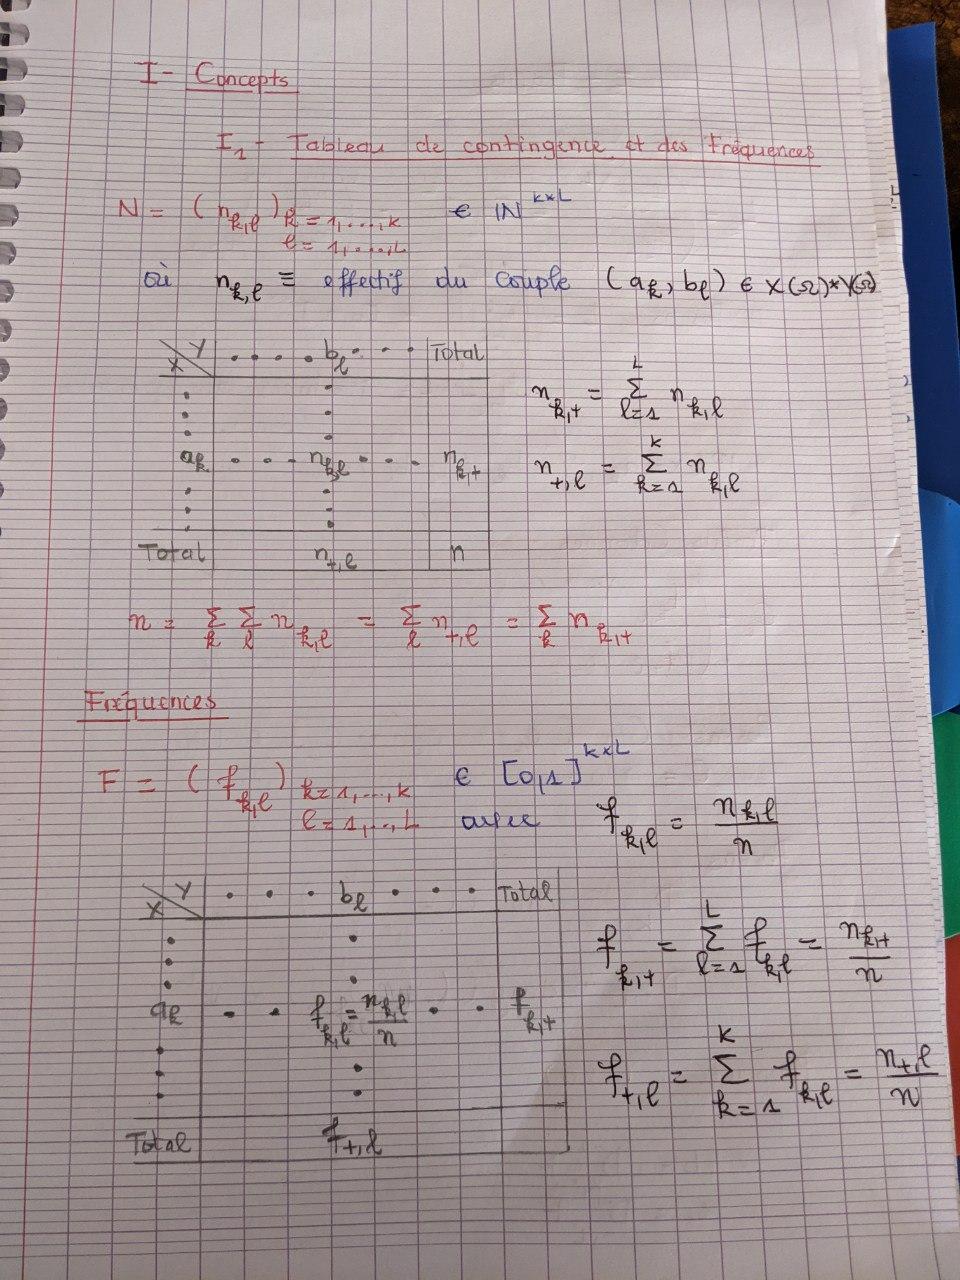 I- Concepts
I₁- Tableau de contingence et des Fréquences
N = (n_{k,l})_{k=1,....,K ∈ ℕ^{K×L}
l= 1,....,L
où n_{k,l} ≡ effectif du couple (a_k, b_l) ∈ X(Ω)*Y(Ω)
X \ Y . . . . b_l . . . Total
a_k . . . n_{k,l} . . . n_{k,+}
Total n_{+,l} n
n_{k,+} = Σ_{l=1}^{L} n_{k,l}
n_{+,l} = Σ_{k=1}^{K} n_{k,l}
n = Σ_k Σ_l n_{k,l} = Σ_l n_{+,l} = Σ_k n_{k,+}
Fréquences
F = (f_{k,l})_{k=1,...,K ∈ [0,1]^{K×L}
l=1,...,L avec f_{k,l} = n_{k,l}/n
X \ Y . . . b_l . . . Total
a_k . . f_{k,l} = n_{k,l}/n . . f_{k,+}
Total f_{+,l}
f_{k,+} = Σ_{l=1}^{L} f_{k,l} = n_{k,+}/n
f_{+,l} = Σ_{k=1}^{K} f_{k,l} = n_{+,l}/n